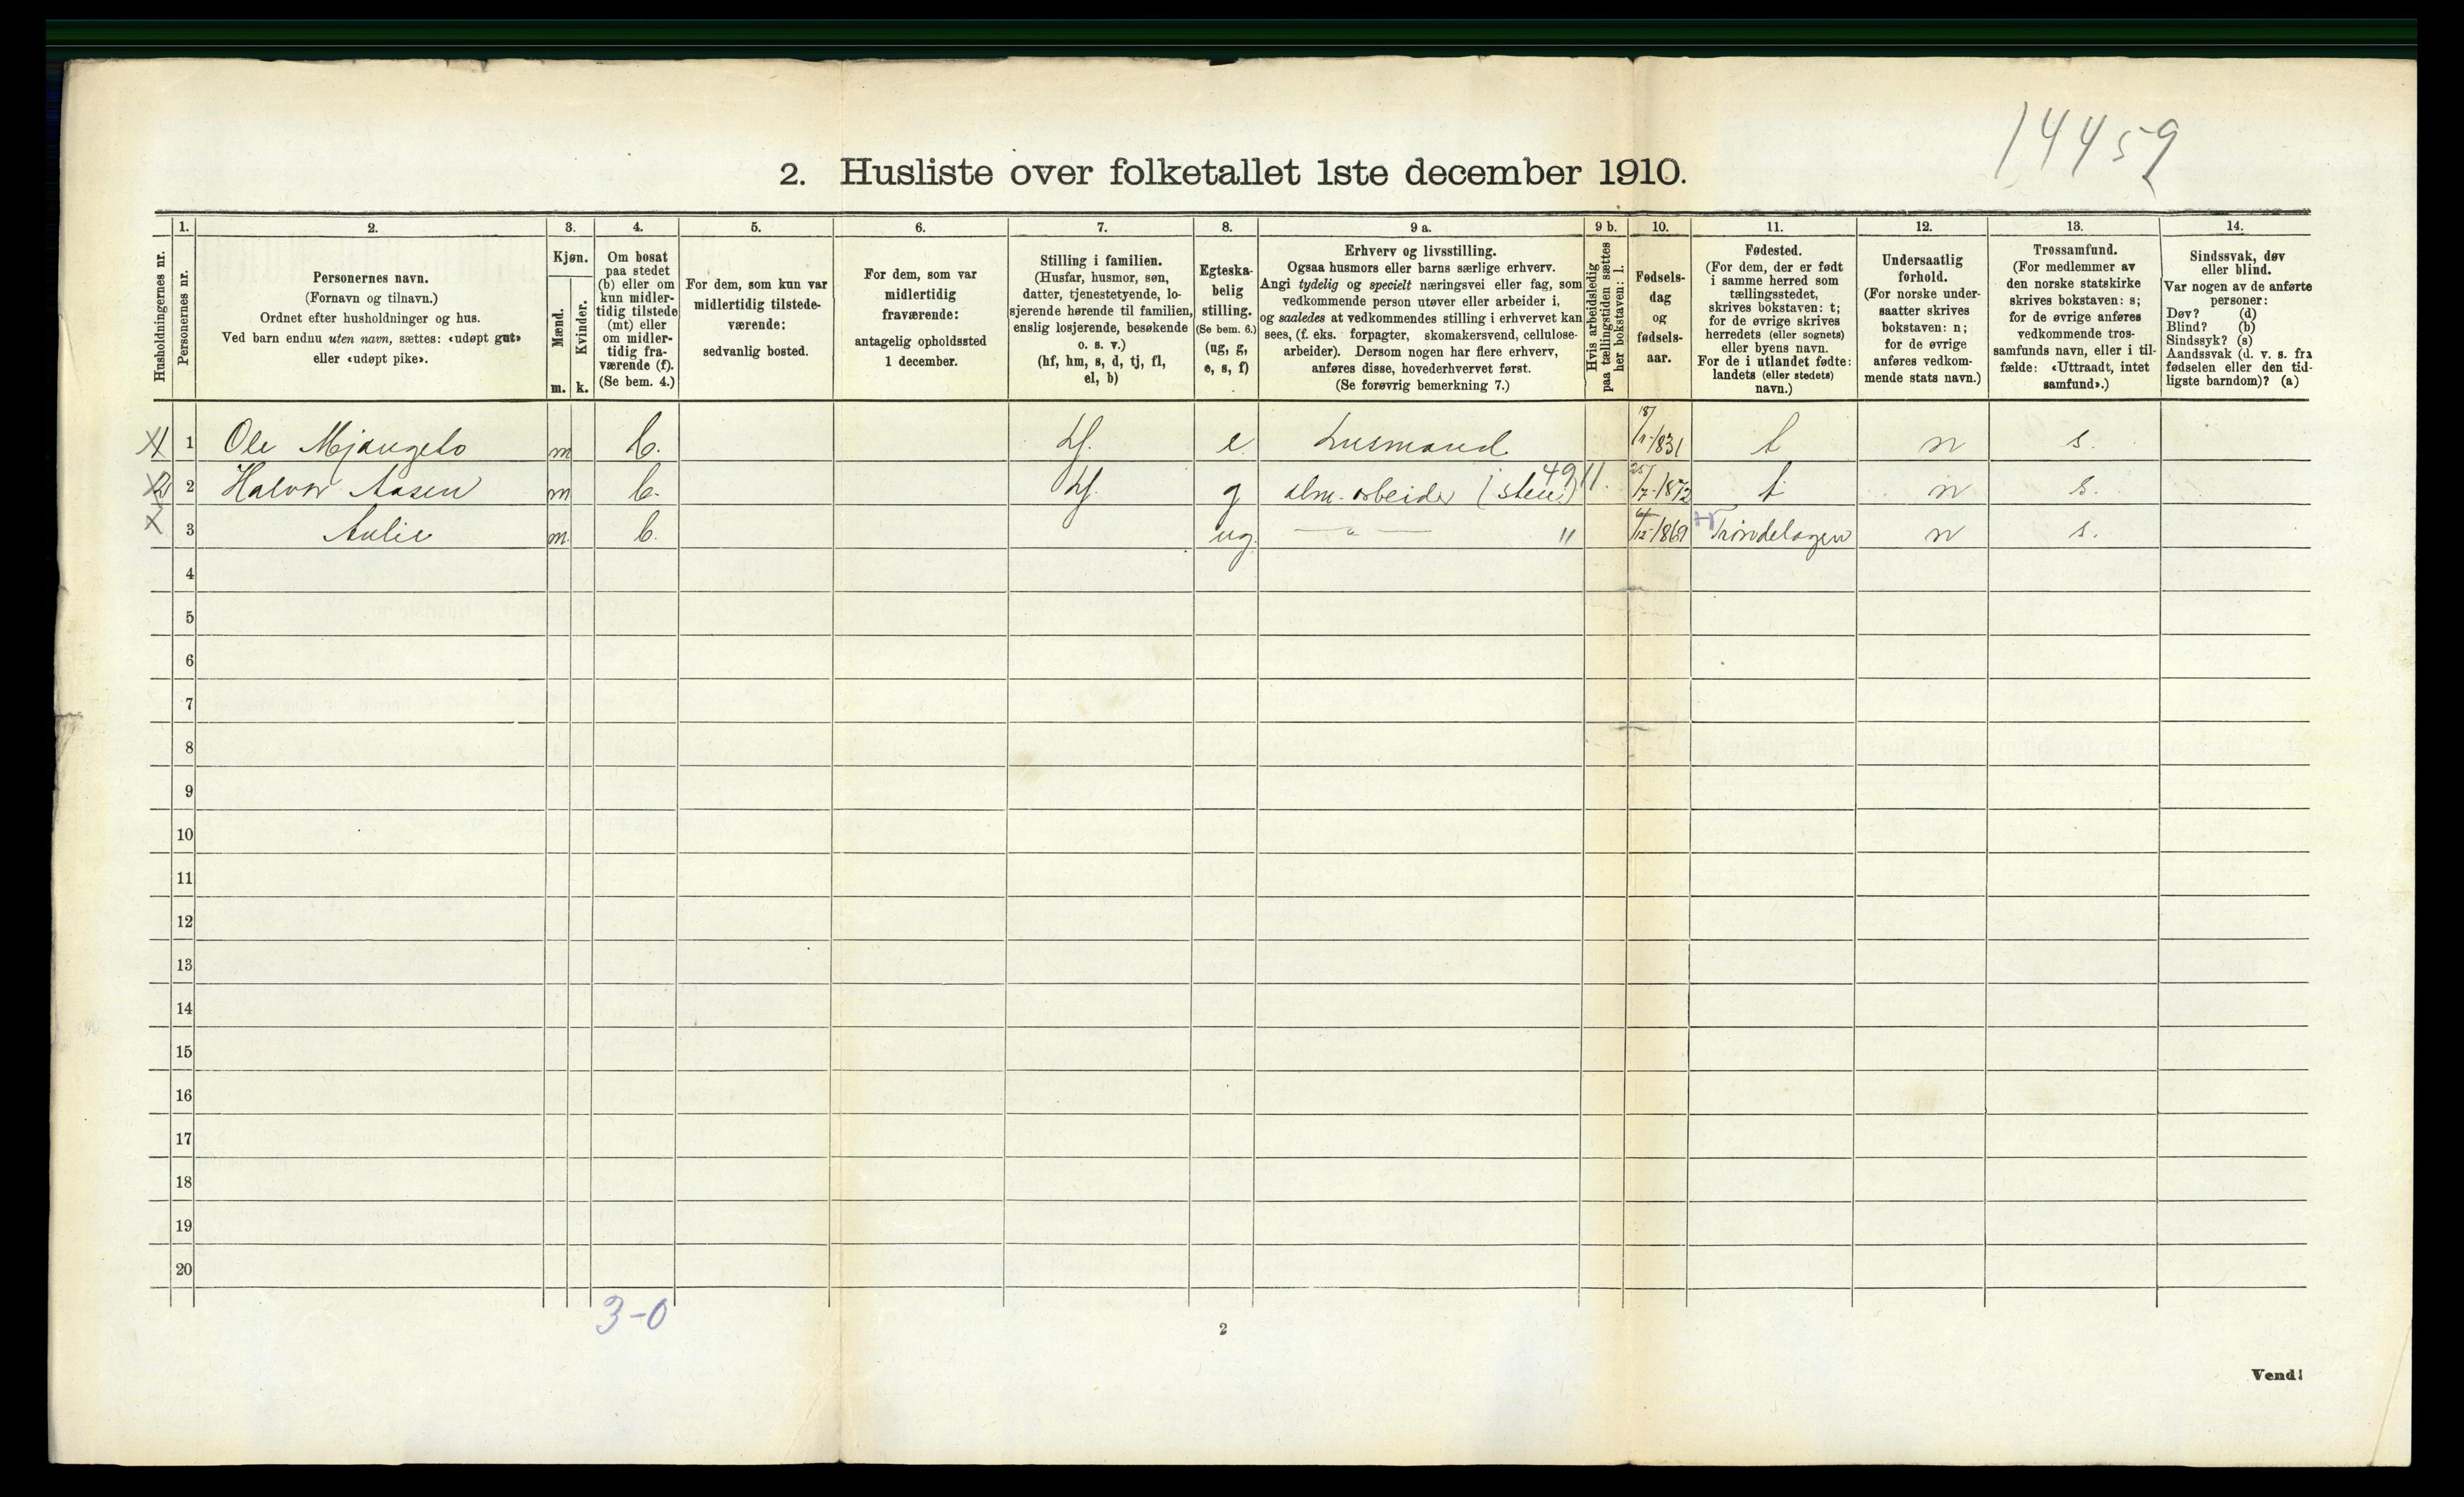 14459
2. Husliste over folketallet 1ste december 1910.
Husholdningernes nr.
1.
Personernes nr.
2.
Personernes navn.
(Fornavn og tilnavn.)
Ordnet efter husholdninger og hus.
Ved barn endnu uten navn, sættes: «udøpt gut»
eller «udøpt pike».
3.
Kjøn.
Mænd.
m.
Kvinder.
k.
4.
Om bosat
paa stedet
(b) eller om
kun midler-
tidig tilstede
(mt) eller
om midler-
tidig fra-
værende (f).
(Se bem. 4.)
5.
For dem, som kun var
midlertidig tilstede-
værende:
sedvanlig bosted.
6.
For dem, som var
midlertidig
fraværende:
antagelig opholdssted
1 december.
7.
Stilling i familien.
(Husfar, husmor, søn,
datter, tjenestetyende, lo-
sjerende hørende til familien,
enslig losjerende, besøkende
o. s. v.)
(hf, hm, s, d, tj, fl,
el, b)
8.
Egteska-
belig
stilling.
(Se bem. 6.)
(ug, g,
e, s, f)
9 a.
Erhverv og livsstilling.
Ogsaa husmors eller barns særlige erhverv.
Angi tydelig og specielt næringsvei eller fag, som
vedkommende person utøver eller arbeider i,
og saaledes at vedkommendes stilling i erhvervet kan
sees, (f. eks. forpagter, skomakersvend, cellulose-
arbeider). Dersom nogen har flere erhverv,
anføres disse, hovederhvervet først.
(Se forøvrig bemerkning 7.)
9 b.
Hvis arbeidsledig
paa tællingstiden sættes
her bokstaven: l.
10.
Fødsels-
dag
og
fødsels-
aar.
11.
Fødested.
(For dem, der er født
i samme herred som
tællingsstedet,
skrives bokstaven: t;
for de øvrige skrives
herredets (eller sognets)
eller byens navn.
For de i utlandet fødte:
landets (eller stedets)
navn.)
12.
Undersaatlig
forhold.
(For norske under-
saatter skrives
bokstaven: n;
for de øvrige
anføres vedkom-
mende stats navn.)
13.
Trossamfund.
(For medlemmer av
den norske statskirke
skrives bokstaven: s;
for de øvrige anføres
vedkommende tros-
samfunds navn, eller i til-
fælde: «Uttraadt, intet
samfund».)
14.
Sindssvak, døv
eller blind.
Var nogen av de anførte
personer:
Døv? (d)
Blind? (b)
Sindssyk? (s)
Aandssvak (d. v. s. fra
fødselen eller den tid-
ligste barndom)? (a)
1 1 Ole m b. hf. e. husmand 18/1-1831 t n s.
2 2 Halvor Aasen m b. hf. g alm. arbeider (sten) 4911. 25/7-1872 t n s.
3 Aulie m b. ug. — " — " /12-1869 Trøndelagen n s.
4
5
6
7
8
9
10
11
12
13
14
15
16
17
18
19
20
3-0
2
Vend!